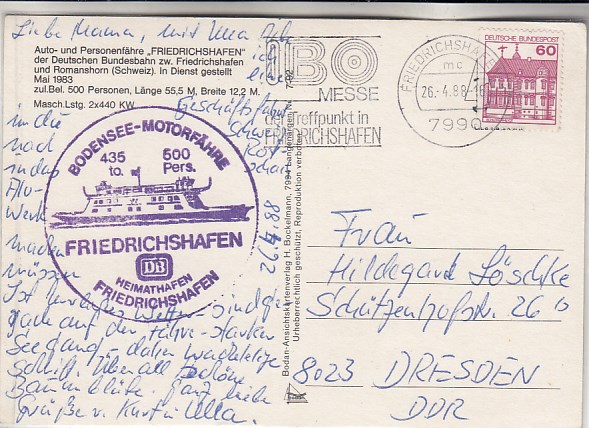 Liebe Mama, mit Ulla
ich
Auto- und Personenfähre „FRIEDRICHSHAFEN"
der Deutschen Bundesbahn zw. Friedrichshafen
und Romanshorn (Schweiz). In Dienst gestellt
Mai 1983
zul.Bel. 500 Personen, Länge 55,5 M, Breite 12,2 M.
Masch.Lstg. 2x440 KW
eine
Geschäftsfahrt
in die Schweiz
nach
in das
Alu-
Werk
machen
müssen
BODENSEE-MOTORFÄHRE
435 500
to. Pers.
FRIEDRICHSHAFEN
DB
HEIMATHAFEN
FRIEDRICHSHAFEN
26.4.88
Ist herrliches Wetter – sind
auf der Fähre – starker
Seegang – daher wackelige
Schrift. Überall schöne
Baumblüte.
Grüße v. Kurt u. Ulla.
Bodan-Ansichtskartenverlag H. Bockelmann, 7994 Langenargen
Urheberrechtlich geschützt, Reproduktion verboten
IBO
MESSE
der Treffpunkt in
FRIEDRICHSHAFEN
FRIEDRICHSHA
mc
26.-4.88-
7990
DEUTSCHE BUNDESPOST
60
Frau
Hildegard Löschke
Schützenhofstr. 26 b
8023 DRESDEN
DDR